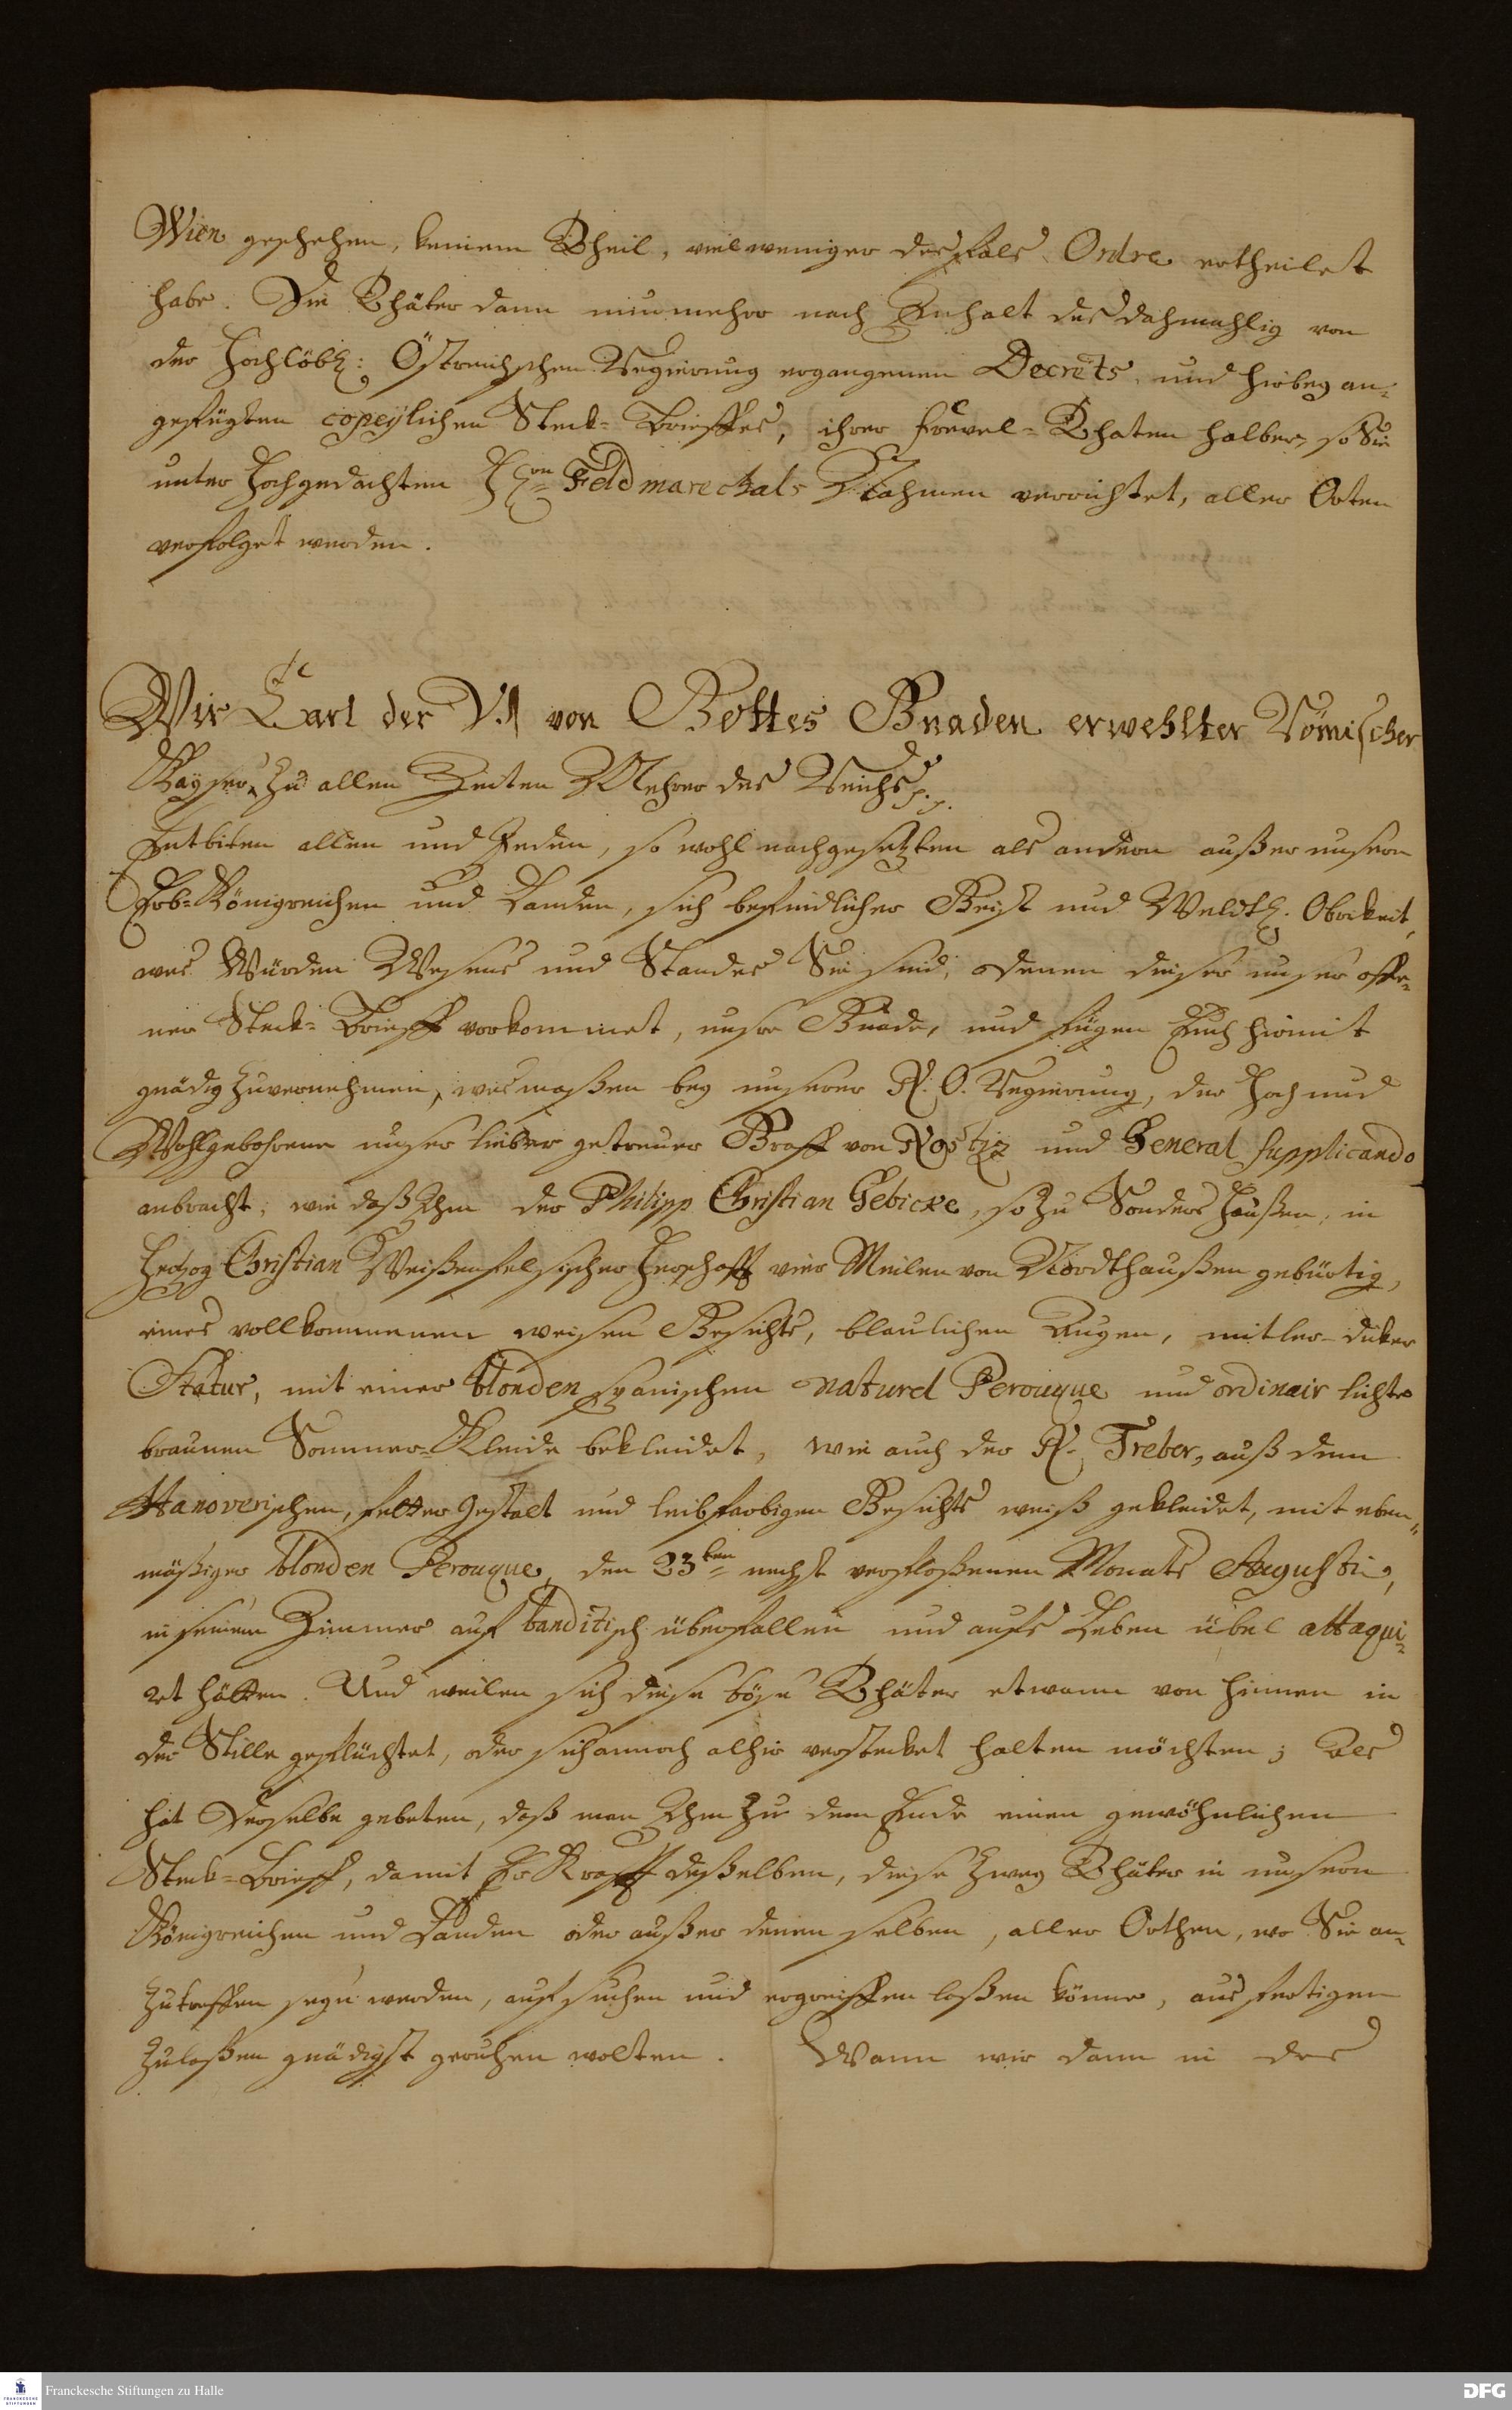 Wien geschehen, keinem Theil, vielweniger desfals Ordre ertheilet
habe. Die Thäter dann nunmehro nach Anhalt des dahmahlig von
der Hochlöbl: Östreichschen Regierung ergangenen Decrets und hirbey an-
gefügten copeylichen Steck-Brieffes, ihrer frevel-Thaten halber, so Sie
unter Hochgedachten HErrn Feldmareschals Nahmen verrichtet, aller Orten
verfolget werden.
Wir Carl der VI von Gottes Gnaden erwehlter Römischer
Kayser, zu allen Zeiten Mehrer des Reichs p.p.
Entbiten allen und Jeden, so wohl nachgesetzten als andern außer unsern
Erb-Königreichen und Landen, sich befindlicher Geist und Weldtl. Obrkeit,
wes Würden Wesens und Standes Sie sind, denen dieser unser offe-
ner Steck-Brieff vorkommet, unsre Gnade, und fügen Euch hirmit
gnädig zuvernehmen, wesmaßen bey unserer N. O. Regierung, der Hoch und
Wohlgebohrene unser lieber getreuer Graff von Nostiz und General supplicando
anbracht, wie daß Ihm der Philipp Christian Gebicke, so zu Sonders Haußen, in
Herzog Christian Weißenfelsischer Herschafft vier Meilen von Nordthaußen gebürtig,
eines vollkommenen weisen Gesichts, blaulichen Augen, mitler-dicker
Statur, mit einer blonden spanischen naturel Perouque und ordinair lichte
braunen Sommer-Kleide bekleidet, wie auch der N. Treber, auß dem
Hanoverischen, fetter Gestalt und leibfarbigen Gesichts weiß gekleidet, mit eben-
mäßiger blonden Perouque, den 23ten nechst verfloßenen Monats Augusti,
in seinem Zimmer auf banditisch überfallen und aufs Leben übel attaqui-
ret hätten. Und weilen sich diese böse Thäter etwann von hinnen in
der Stille geflüchtet, oder sich annoch alhir verstecket halten möchten; Als
hat Derselbe gebeten, daß man Ihm zu dem Ende einen gewöhnlichen
Steck-Brieff, damit Er Krafft deßelben, diese zwey Thäter in unsern
Königreichen und Landen oder außer denen selben, aller Orthen, wo Sie an-
zutreffen seyn werden, aufsuchen und ergreiffen laßen könne, ausfertigen
zulaßen gnädigst geruhen wolten. Wann wir dann in des
Franckesche Stiftungen zu Halle
DFG